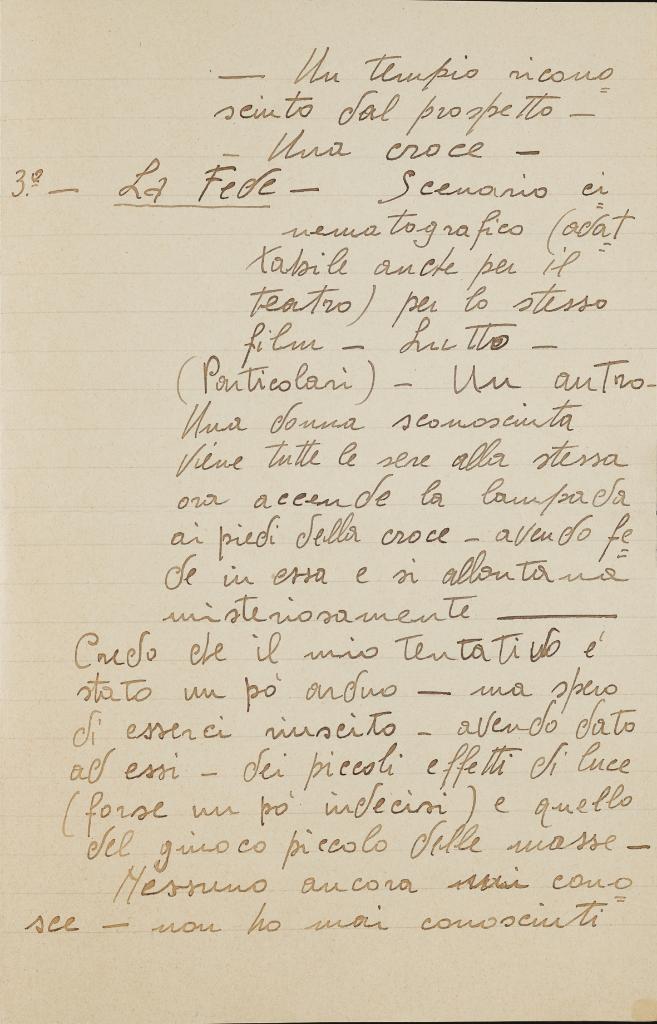 — Un tempio ricono=
sciuto dal prospetto —
— Una croce —
3.º — La Fede — Scenario ci=
nematografico (adat=
tabile anche per il
teatro) per lo stesso
film — Lutto —
(Particolari) — Un antro-
Una donna sconosciuta
viene tutte le sere alla stessa
ora accende la lampada
ai piedi della croce — avendo fe=
de in essa e si allontana
misteriosamente ———
Credo che il mio tentativo é
stato un pó arduo — ma spero
di esserci riuscito — avendo dato
ad essi — dei piccoli effetti di luce
(forse un pó indecisi) e quello
del giuoco piccolo delle masse —
Nessuno ancora cono=
sce — non ho mai conosciuti